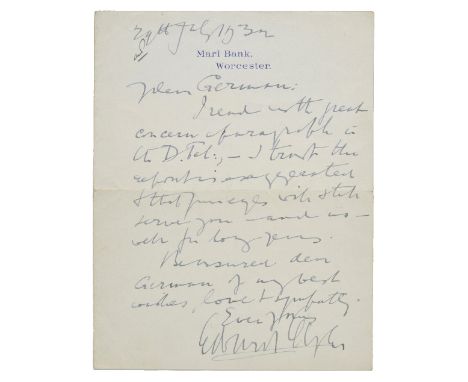 29th July 1932
Marl Bank,
Worcester.
Dear German:
I read with great
concern a paragraph in
the D. Tel:, – I trust the
report is exaggerated
& that your eyes will still
serve you – and us –
well for long years.
Be assured dear
German of my best
wishes, love & sympathy.
Ever yours
Edward Elgar